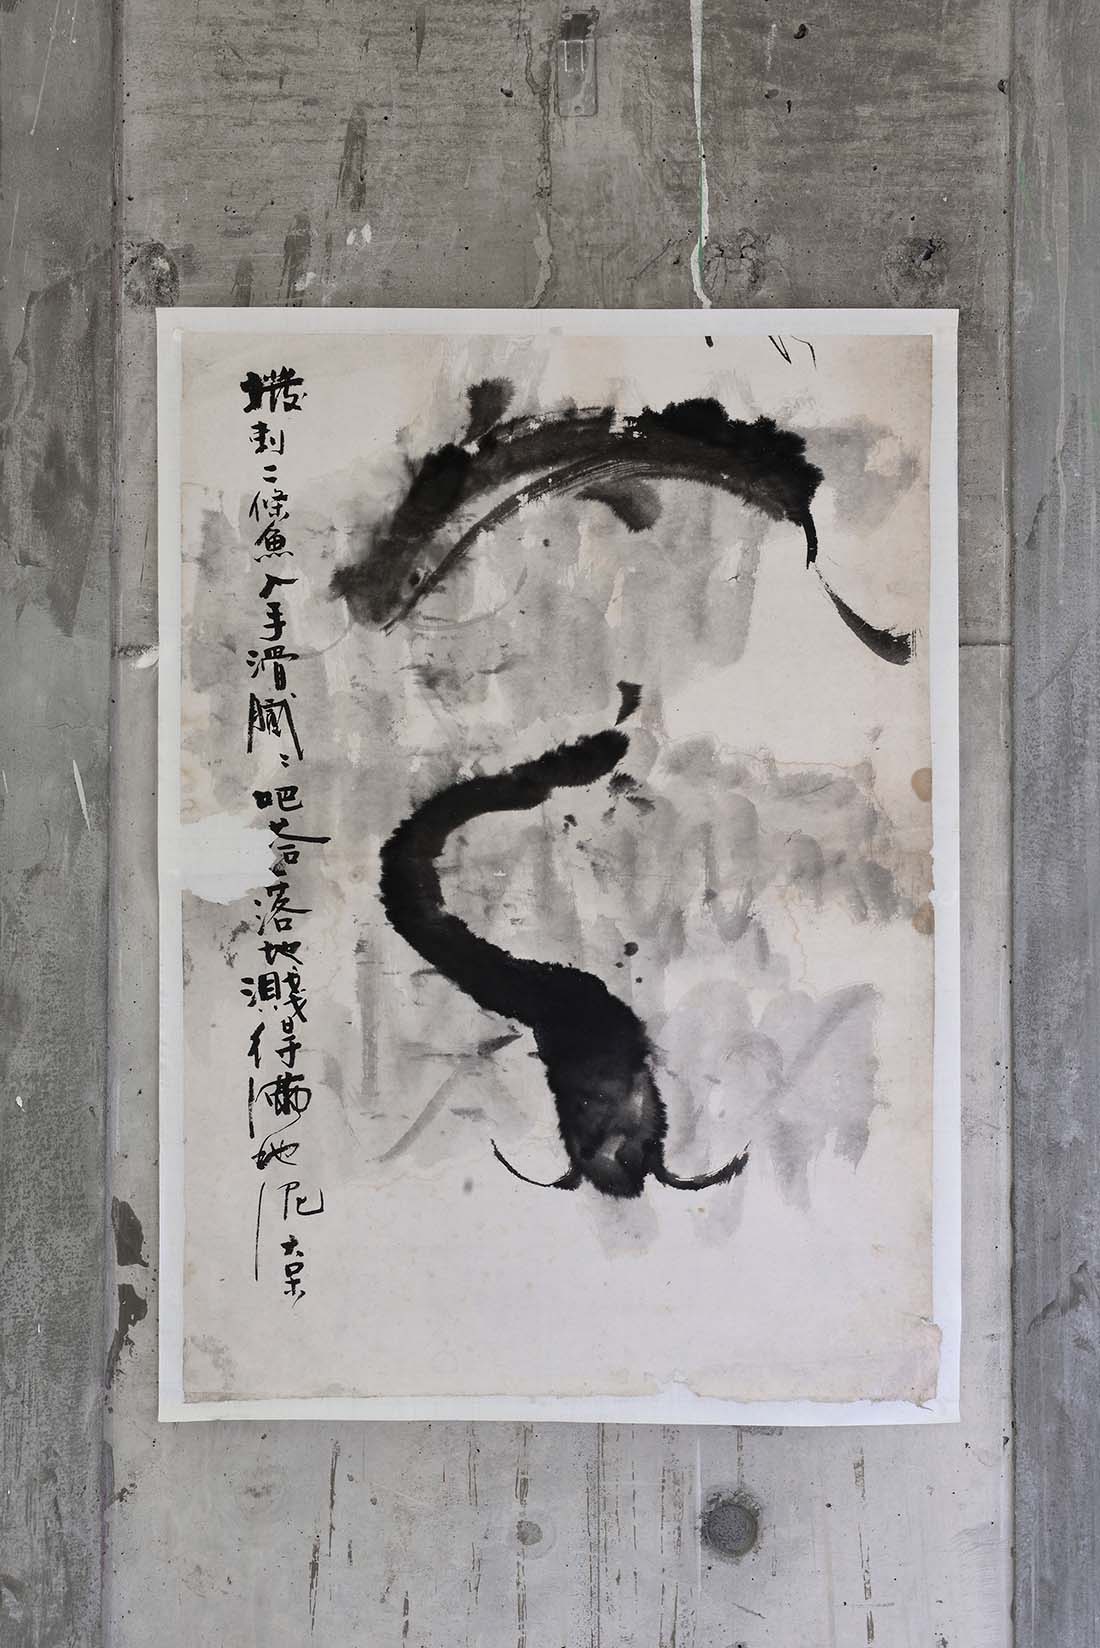 撥剌二條魚入手滑膩〻吧荅落地濺得滿地泥 大呆